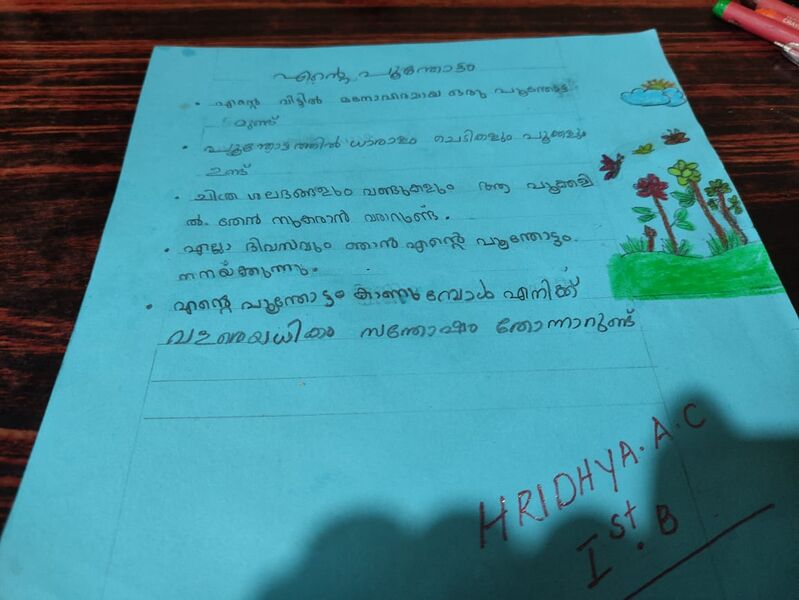 എന്റെ പൂന്തോട്ടം
• എന്റെ വീട്ടിൽ മനോഹരമായ ഒരു പൂന്തോട്ട
മുണ്ട്
• പൂന്തോട്ടത്തിൽ ധാരാളം ചെടികളും പൂക്കളും
ഉണ്ട്
• ചിത്ര ശലഭങ്ങളും വണ്ടുകളും ആ പൂക്കളി
ൽ തേൻ നുകരാൻ വരാറുണ്ട്.
• എല്ലാ ദിവസവും ഞാൻ എന്റെ പൂന്തോട്ടം
നനയ്ക്കുന്നു.
• എന്റെ പൂന്തോട്ടം കാണുമ്പോൾ എനിക്ക്
വളരെയധികം സന്തോഷം തോന്നാറുണ്ട്
HRIDHYA.A.C
Ist.B